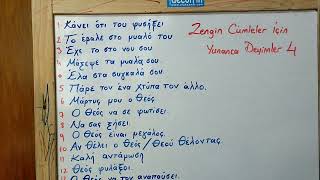 Zengin Cümleler İçin
Yunanca Deyimler 4
1 Κάνει ότι του φυσήξει
2 Το έβαλε στο μυαλό του
3 Έχε το στο νου σου
4 Μάζεψε τα μυαλά σου
4 Έλα στα συγκαλά σου
5 Πάρε τον ένα χτύπα τον άλλο.
6 Μάρτυς μου ο Θεός.
7 Ο Θεός να σε φωτίσει.
8 Να σας ζήσει.
9 Ο Θεός είναι μεγάλος.
10 Αν θέλει ο Θεός/Θεού θέλοντος
11 Καλή αντάμωση
12 Θεός φυλάξοι
Ο Θεός να τον αναπαύσει.